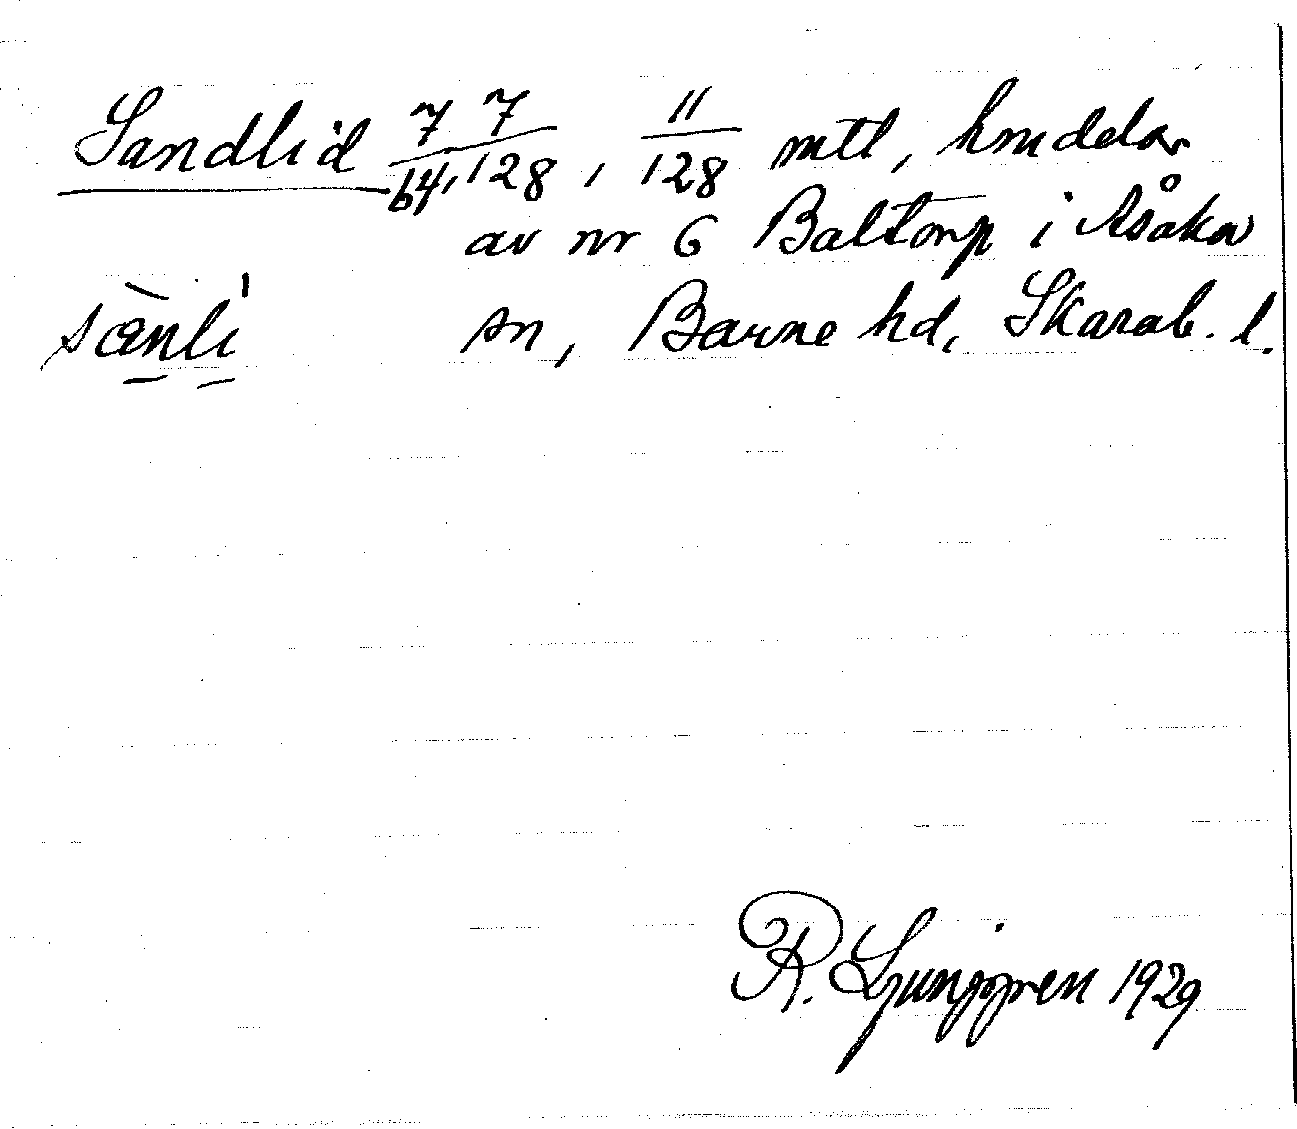 Sandlid 7/64, 7/128, 11/128 mtl, hmdelar
av nr 6 Baltorp i Åsaka
sànlì sn, Barne hd, Skarab. l.
R. Ljunggren 1929